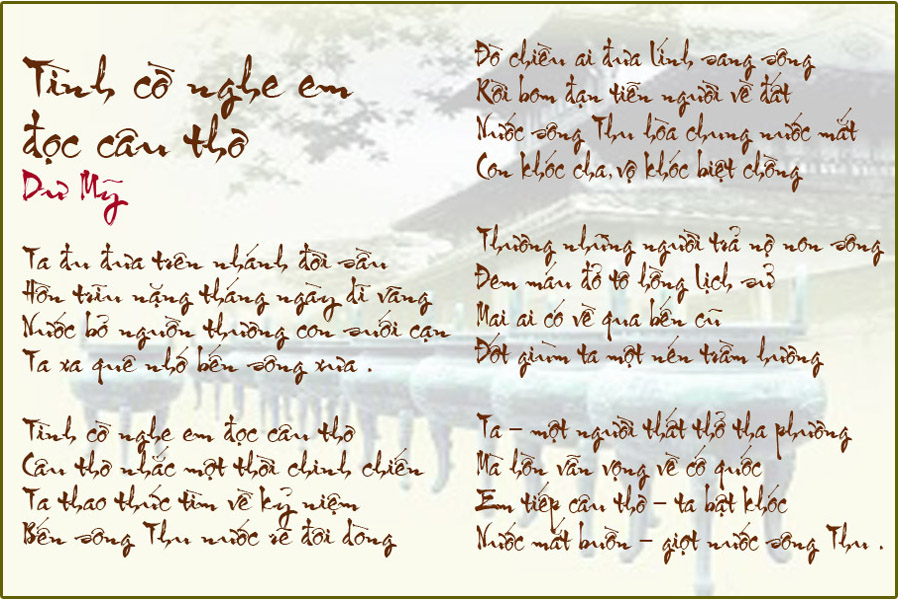 Tình cờ nghe em
đọc câu thơ
Dư Mỹ
Ta đu đưa trên nhánh đời sầu
Hồn trĩu nặng tháng ngày dĩ vãng
Nước bỏ nguồn thương con suối cạn
Ta xa quê nhớ bến sông xưa .
Tình cờ nghe em đọc câu thơ
Câu thơ nhắc một thời chinh chiến
Ta thao thức tìm về kỷ niệm
Bến sông Thu nước rẽ đôi dòng
Đò chiều ai đưa lính sang sông
Rồi bom đạn tiễn người về đất
Nước sông Thu hòa chung nước mắt
Con khóc cha, vợ khóc biệt chồng
Thương những người trả nợ non sông
Đem máu đỏ tô hồng lịch sử
Mai ai có về qua bến cũ
Đốt giùm ta một nén trầm hương
Ta – một người thất thở tha phương
Mà hồn vẫn vọng về cố quốc
Em tiếp câu thơ – ta bật khóc
Nước mắt buồn – giọt nước sông Thu .